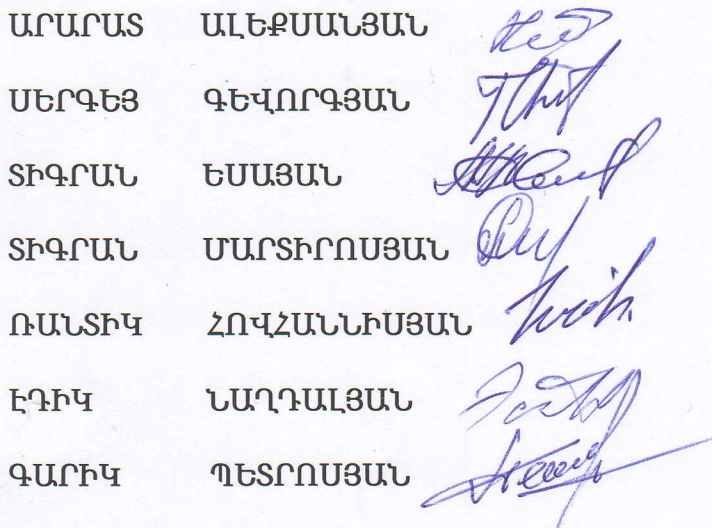 ԱՐԱՐԱՏ ԱԼԵՔՍԱՆՅԱՆ
ՍԵՐԳԵՅ ԳԵՎՈՐԳՅԱՆ
ՏԻԳՐԱՆ ԵՍԱՅԱՆ
ՏԻԳՐԱՆ ՄԱՐՏԻՐՈՍՅԱՆ
ՌԱՆՏԻԿ ՀՈՎՀԱՆՆԻՍՅԱՆ
ԷԴԻԿ ՆԱՂԴԱԼՅԱՆ
ԳԱՐԻԿ ՊԵՏՐՈՍՅԱՆ